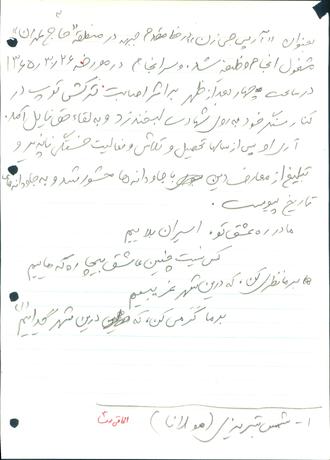 بعنوان «آر پی جی زن» در خط مقدم جبهه در منطقه "حاج عمران"
مشغول انجام وظیفه شد. و سرانجام در مورخه ۱۳۶۵/۲/۲۶
در ساعت چهار بعد از ظهر بر اثر اصابت ترکش توپ در
کنار سنگر خود به روی شهادت لبخند زد و به لقاء حق نایل آمد.
آری او پس از سالها تحصیل و تلاش و فعالیت خستگی ناپذیر و
تبلیغ از معارف دین با جاودانه ها محشور شد و به جاودانه های
تاریخ پیوست.
ما در ره عشق تو اسیران بلاییم
کس نیست چنین عاشق بیچاره که ماییم
بر ما نظری کن، که درین شهر غریبیم
بر ما کرمی کن، که درین شهر گداییم (۱)
۱- شمس تبریزی (مولانا)